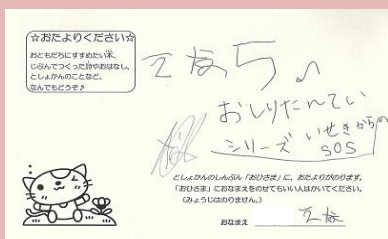 ☆おたよりください☆
おともだちにすすめたい本、
じぶんでつくった詩やおはなし、
としょかんのことなど、
なんでもどうぞ♪
5
おしりたんてい
シリーズ いせきからの
SOS
としょかんのしんぶん「おひさま」に、おたよりがのります。
「おひさま」におなまえをのせてもいい人はかいてください。
(みょうじはのりません。)
おなまえ